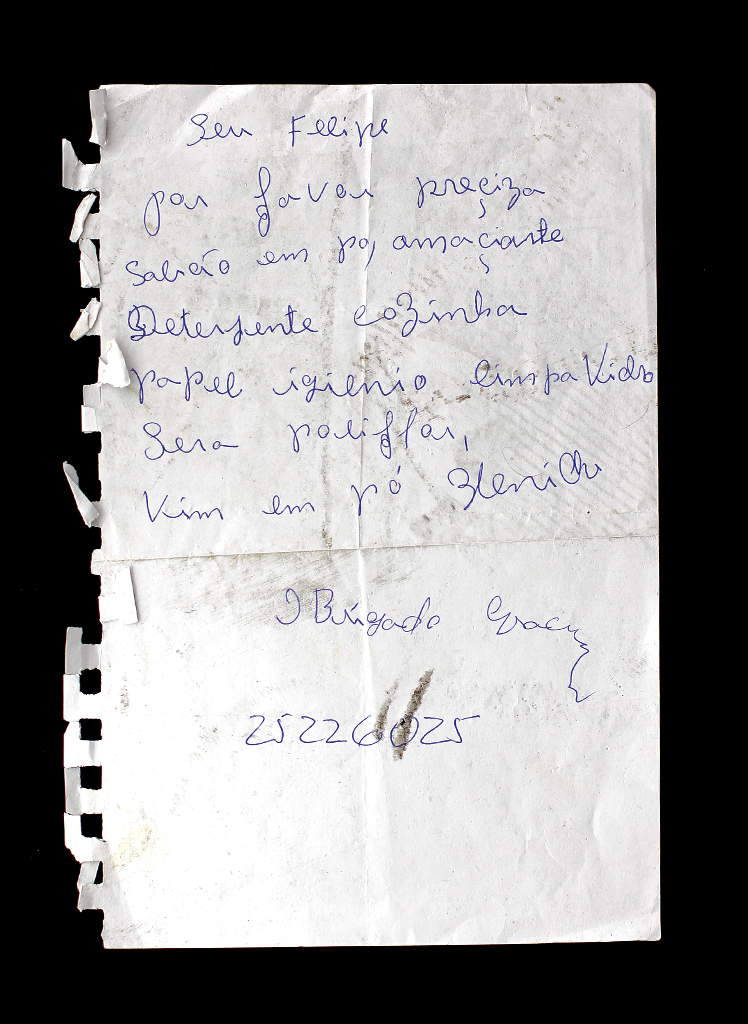 Seu Felipe
por favor preçiza
Sabão em po, amaçiante
Detergente cozinha
papel igienio limpa Vidro
Sera poliflor,
Vim em pó
Obrigado Gracy
25226025